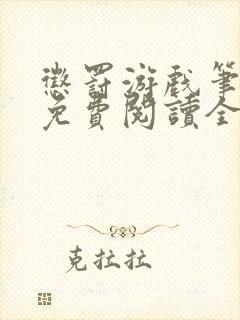 懲罰游戲筆
免費閱讀全
克拉拉